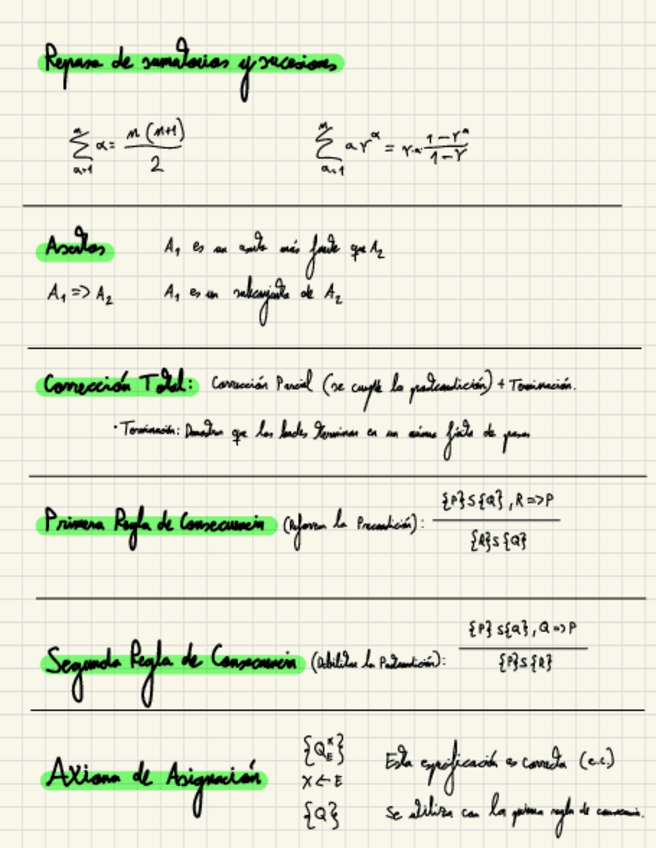 Repaso de sumatorios y sucesiones
∑_{α=1}^{n} α = n(n+1)/2    ∑_{α=1}^{n} a r^α = r·a· (1-r^n)/(1-r)
Asertos    A₁ es un aserto más fuerte que A₂
A₁ => A₂    A₁ es un subconjunto de A₂
Corrección Total: Corrección Parcial (se cumple la postcondición) + Terminación.
· Terminación: Demostrar que los bucles terminan en un número finito de pasos
Primera Regla de Consecuencia (Reforzar la Precondición): {P}S{Q}, R=>P
{R}S{Q}
Segunda Regla de Consecuencia (Debilitar la Postcondición): {P}S{Q}, Q=>P
{P}S{R}
{Q_E^x}
Axioma de Asignación    x ← E    Esta especificación es correcta (e.c)
{Q}    Se utiliza con la primera regla de consecuencia.